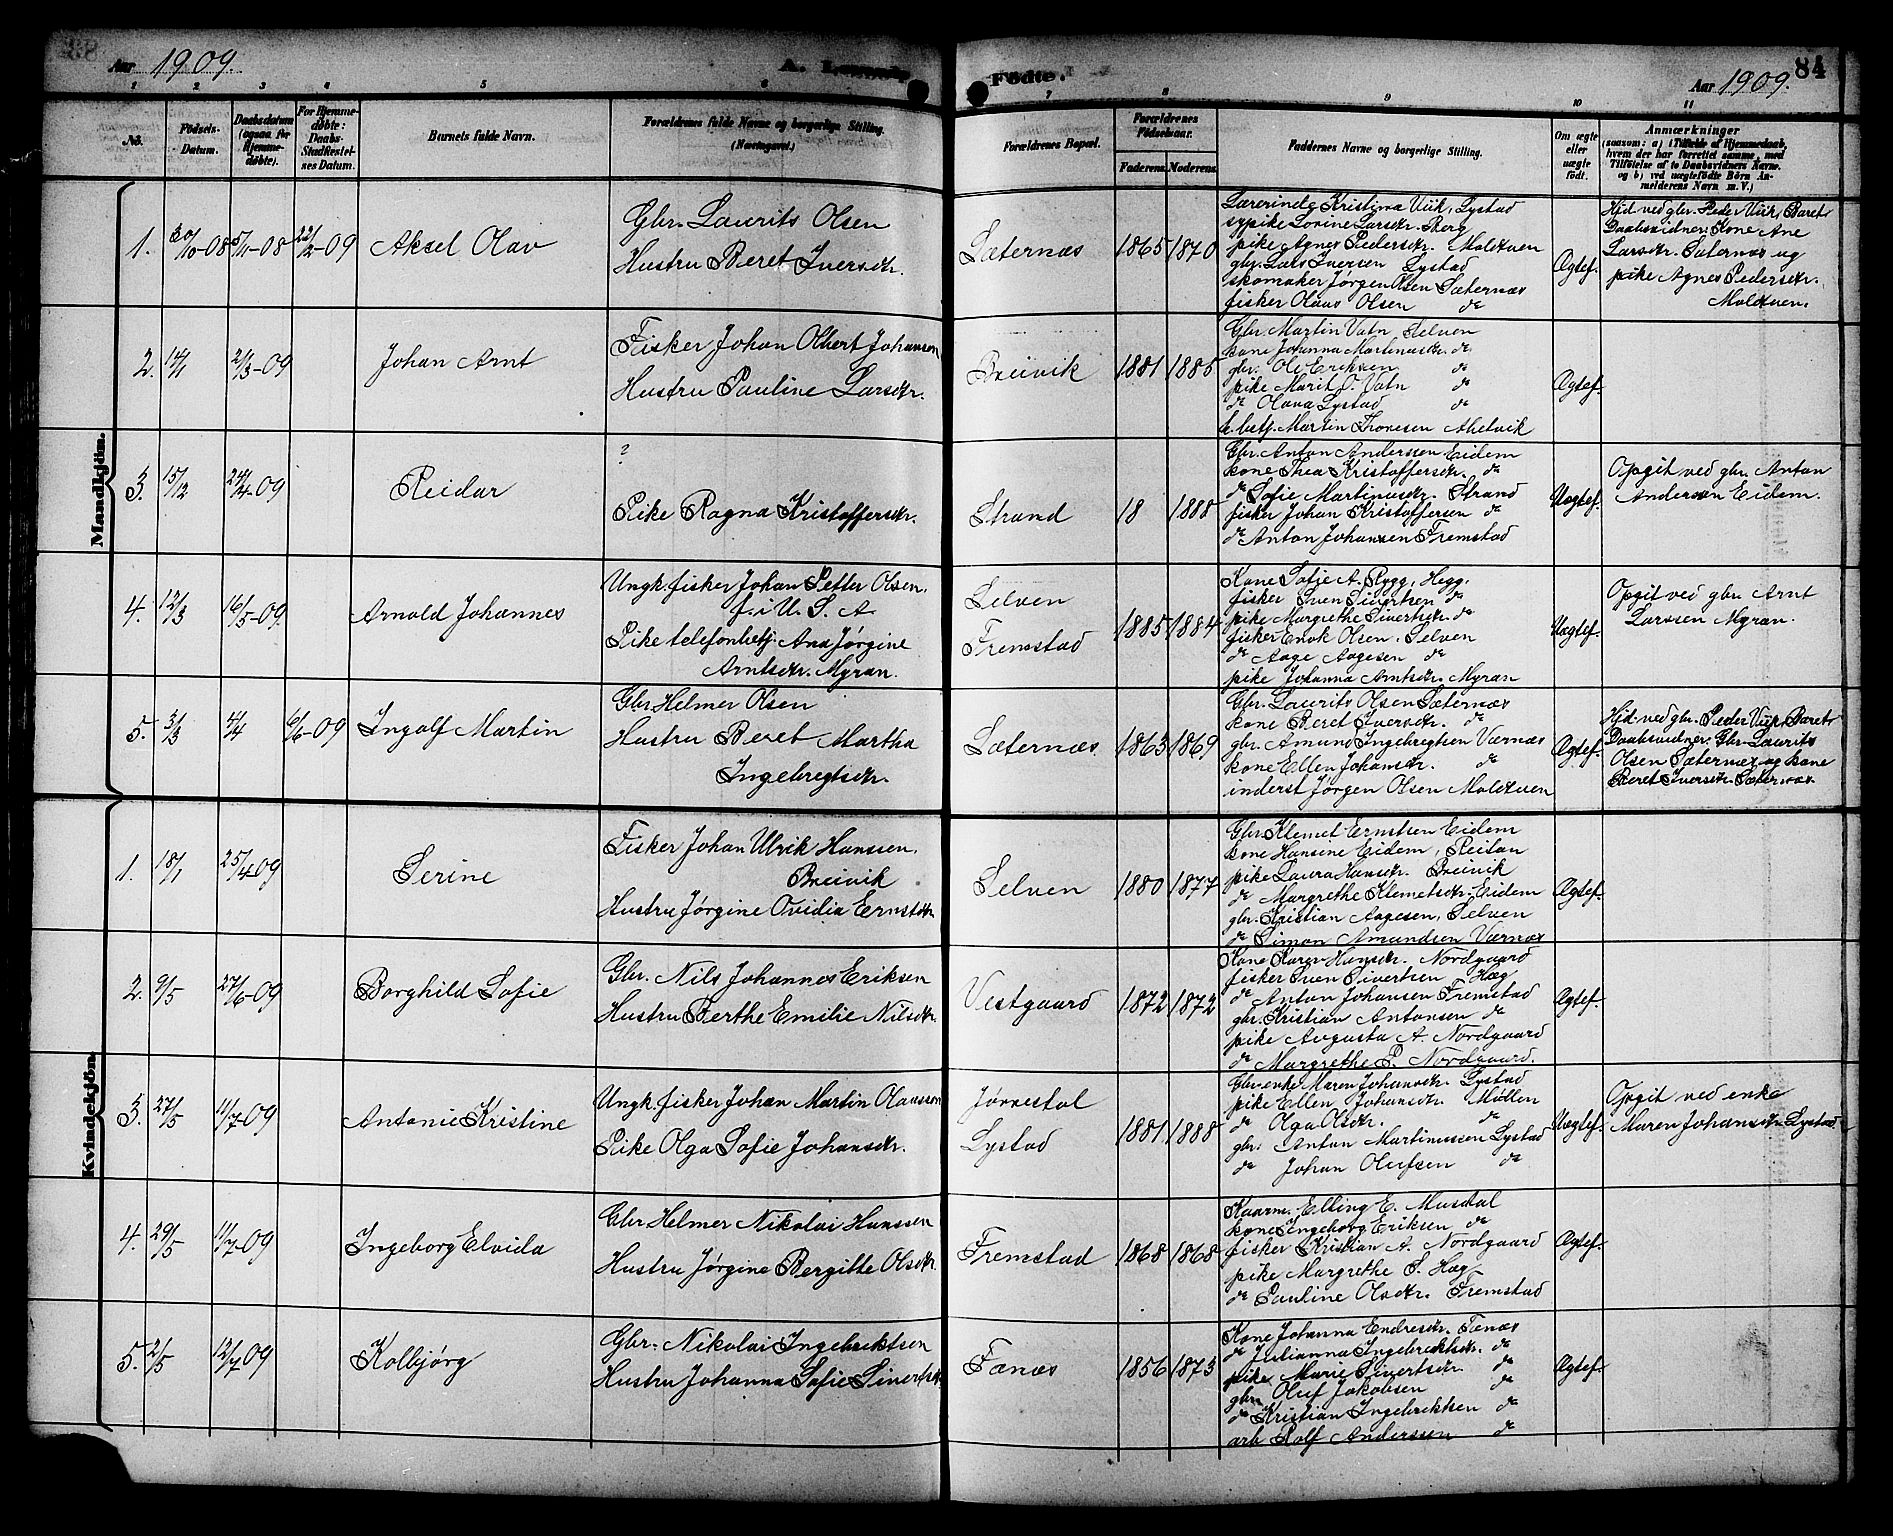 Aar 1909.
A.
Födte.
Aar 1909.
84
1 2 3 4 5 6 7 8 9 10 11
No.
Födsels-
Datum.
Daabsdatum
(ogsaa for
Hjemme-
døbte).
For Hjemme-
døbte:
Daabs-
Stadfæstel-
ses Datum.
Barnets fulde Navn.
Forældrenes fulde Navne og borgerlige Stilling.
Forældrenes Bopæl.
Forældrenes
Fødselsaar.
Faderens Moderens
Faddernes Navne og borgerlige Stilling.
Om ægte
eller
uægte
født.
Anmærkninger
(saasom: a) i Tilfælde af Hjemmedaab,
hvem der har forrettet samme, med
Tilføielse af to Daabsvidners Navne,
og b) ved uægtefødte Börn An-
melderens Navn m. V.)
Mandkjön.
1. 30/10-08 5/11-08 22/2-09 Aksel Olav
Gbr. Laurits Olsen
Hustru Beret Iversdtr.
Sæternæs 1865 1870
Lærerinde Kristina Viik, Lystad
sypike Lovine Larsdtr. Berg
pike Agnes Pedersdtr. Moldtuen
gbr. Lars Iversen Lystad
skomaker Jørgen Olsen Sæternæs
fisker Olaus Olsen do
Ægtef.
Hjd. ved gbr. Peder Viik, Baret
Daabsvidner: Kone Ane
Larsdtr. Sæternæs og
pike Agnes Pedersdtr.
Moldtuen.
2. 14/1 2/3-09 Johan Arnt
Fisker Johan Olbert Johansen
Hustru Pauline Larsdtr.
Breivik 1881 1885
Gbr. Martin Vatn Selven
kone Johanna Martinusdtr. do
gbr. Ole Eriksen do
pike Marit O. Vatn do
do Olava Lystad do
Martin Thoresen
Ægtef.
3. 15/12 24/4-09 Reidar
?
Pike Ragna Kristoffersdtr.
Strand 18 1888
Gbr. Anton Andersen Eidem
kone Thea Kristoffersdtr. do
do Sofie Martinusdtr. Strand
fisker Johan Kristoffersen do
do Anton Johansen Fremstad
Uægtef.
Opgit ved gbr. Anton
Andersen Eidem.
4. 12/3 16/5-09. Arnold Johannes
Ungk. fisker Johan Petter Olsen.
f. i U. S. A
Pike telefonbetj. Ana Jørgine
Arntsdtr. Myran.
Selven
Fremstad 1885 1884
Kone Sofie A. Rygg, Hegg.
fisker Sven Sivertsen do
pike Margrethe Sivertsdtr. do
fisker Enok Olsen. Selven
do Aage Aagesen do
pike Johanna Arntsdtr. Myran
Uægtef.
Opgit ved gbr. Arnt
Larsen Myran.
5. 3/3 4/4 6/6-09 Ingolf Martin
Gbr. Helmer Olsen
Hustru Beret Martha
Ingebregtsdtr.
Sæternæs 1863 1869
Gbr. Laurits Olsen Sæternæs
kone Beret Iversdtr. do
gbr. Amund Ingebregtsen Værnæs
kone Ellen Johansdtr. do
inderst Jørgen Olsen Moldtuen
Ægtef.
Hjd. ved gbr. Peder Viik, Baret
Daabsvidner: Gbr. Laurits
Olsen Sæternæs og kone
Beret Iversdtr. Sæternæs
Kvindekjön.
1. 18/1 25/4-09 Serine
Fisker Johan Ulrik Hanssen.
Breivik
Hustru Jørgine Ovidia Ernstdtr.
Selven 1880 1877
Gbr. Klemet Ernstsen Eidem
kone Hansine Eidem, Reitan
pike Laura Hansdtr. Breivik
do Margrethe Klemetsdtr. Eidem
gbr. Kristian Aagesen, Selven
do Simon Amundsen Værnæs
Ægtef.
2. 9/5 27/6-09 Borghild Sofie
Gbr. Nils Johannes Eriksen
Hustru Berthe Emilie Nilsdtr.
Vestgaard 1872 1872
Kone Karen Hansdtr. Nordgaard
fisker Sven Sivertsen Hæg
do Anton Johansen Fremstad
gbr. Kristian Antonsen do
pike Augusta A. Nordgaard
do Margrethe P. Nordgaard.
Ægtef.
3. 27/5 11/7-09 Antonie Kristine
Ungk. fisker Johan Martin Olausson
Pike Olga Sofie Johansdtr.
Jøvvestøl
Lystad 1881 1888
Gbr. enke Maren Johansdtr. Lystad
pike Ellen Johansdtr. Møllen
do Olga Olsdtr. do
gbr. Anton Martinussen Lystad
do Johan Olufsen do
Uægtef.
Opgit ved enke
Maren Johansdtr. Lystad
4. 29/5 11/7-09 Ingeborg Elvida
Gbr. Helmer Nikolai Hanssen
Hustru Jørgine Bergitte Olsdtr.
Fremstad 1868 1868
Kaarm. Elling E. Musdal
kone Ingeborg Eriksen do
fisker Kristian A. Nordgaard
pike Margrethe S. Hæg
do Pauline Olsdtr. Fremstad
Ægtef.
5. 2/5 12/7-09 Kolbjørg
Gbr. Nikolai Ingebriktsen
Hustru Johanna Sofie Sivertsdtr.
Fænæs 1856 1873
Kone Johanna Endresdtr. Fænæs
do Justianna Ingebriktsdtr. do
pike Marie Sivertsdtr. do
gbr. Oluf Jakobsen do
do Kristian Ingebriktsen do
arb Rolf Anderssen do
Ægtef.